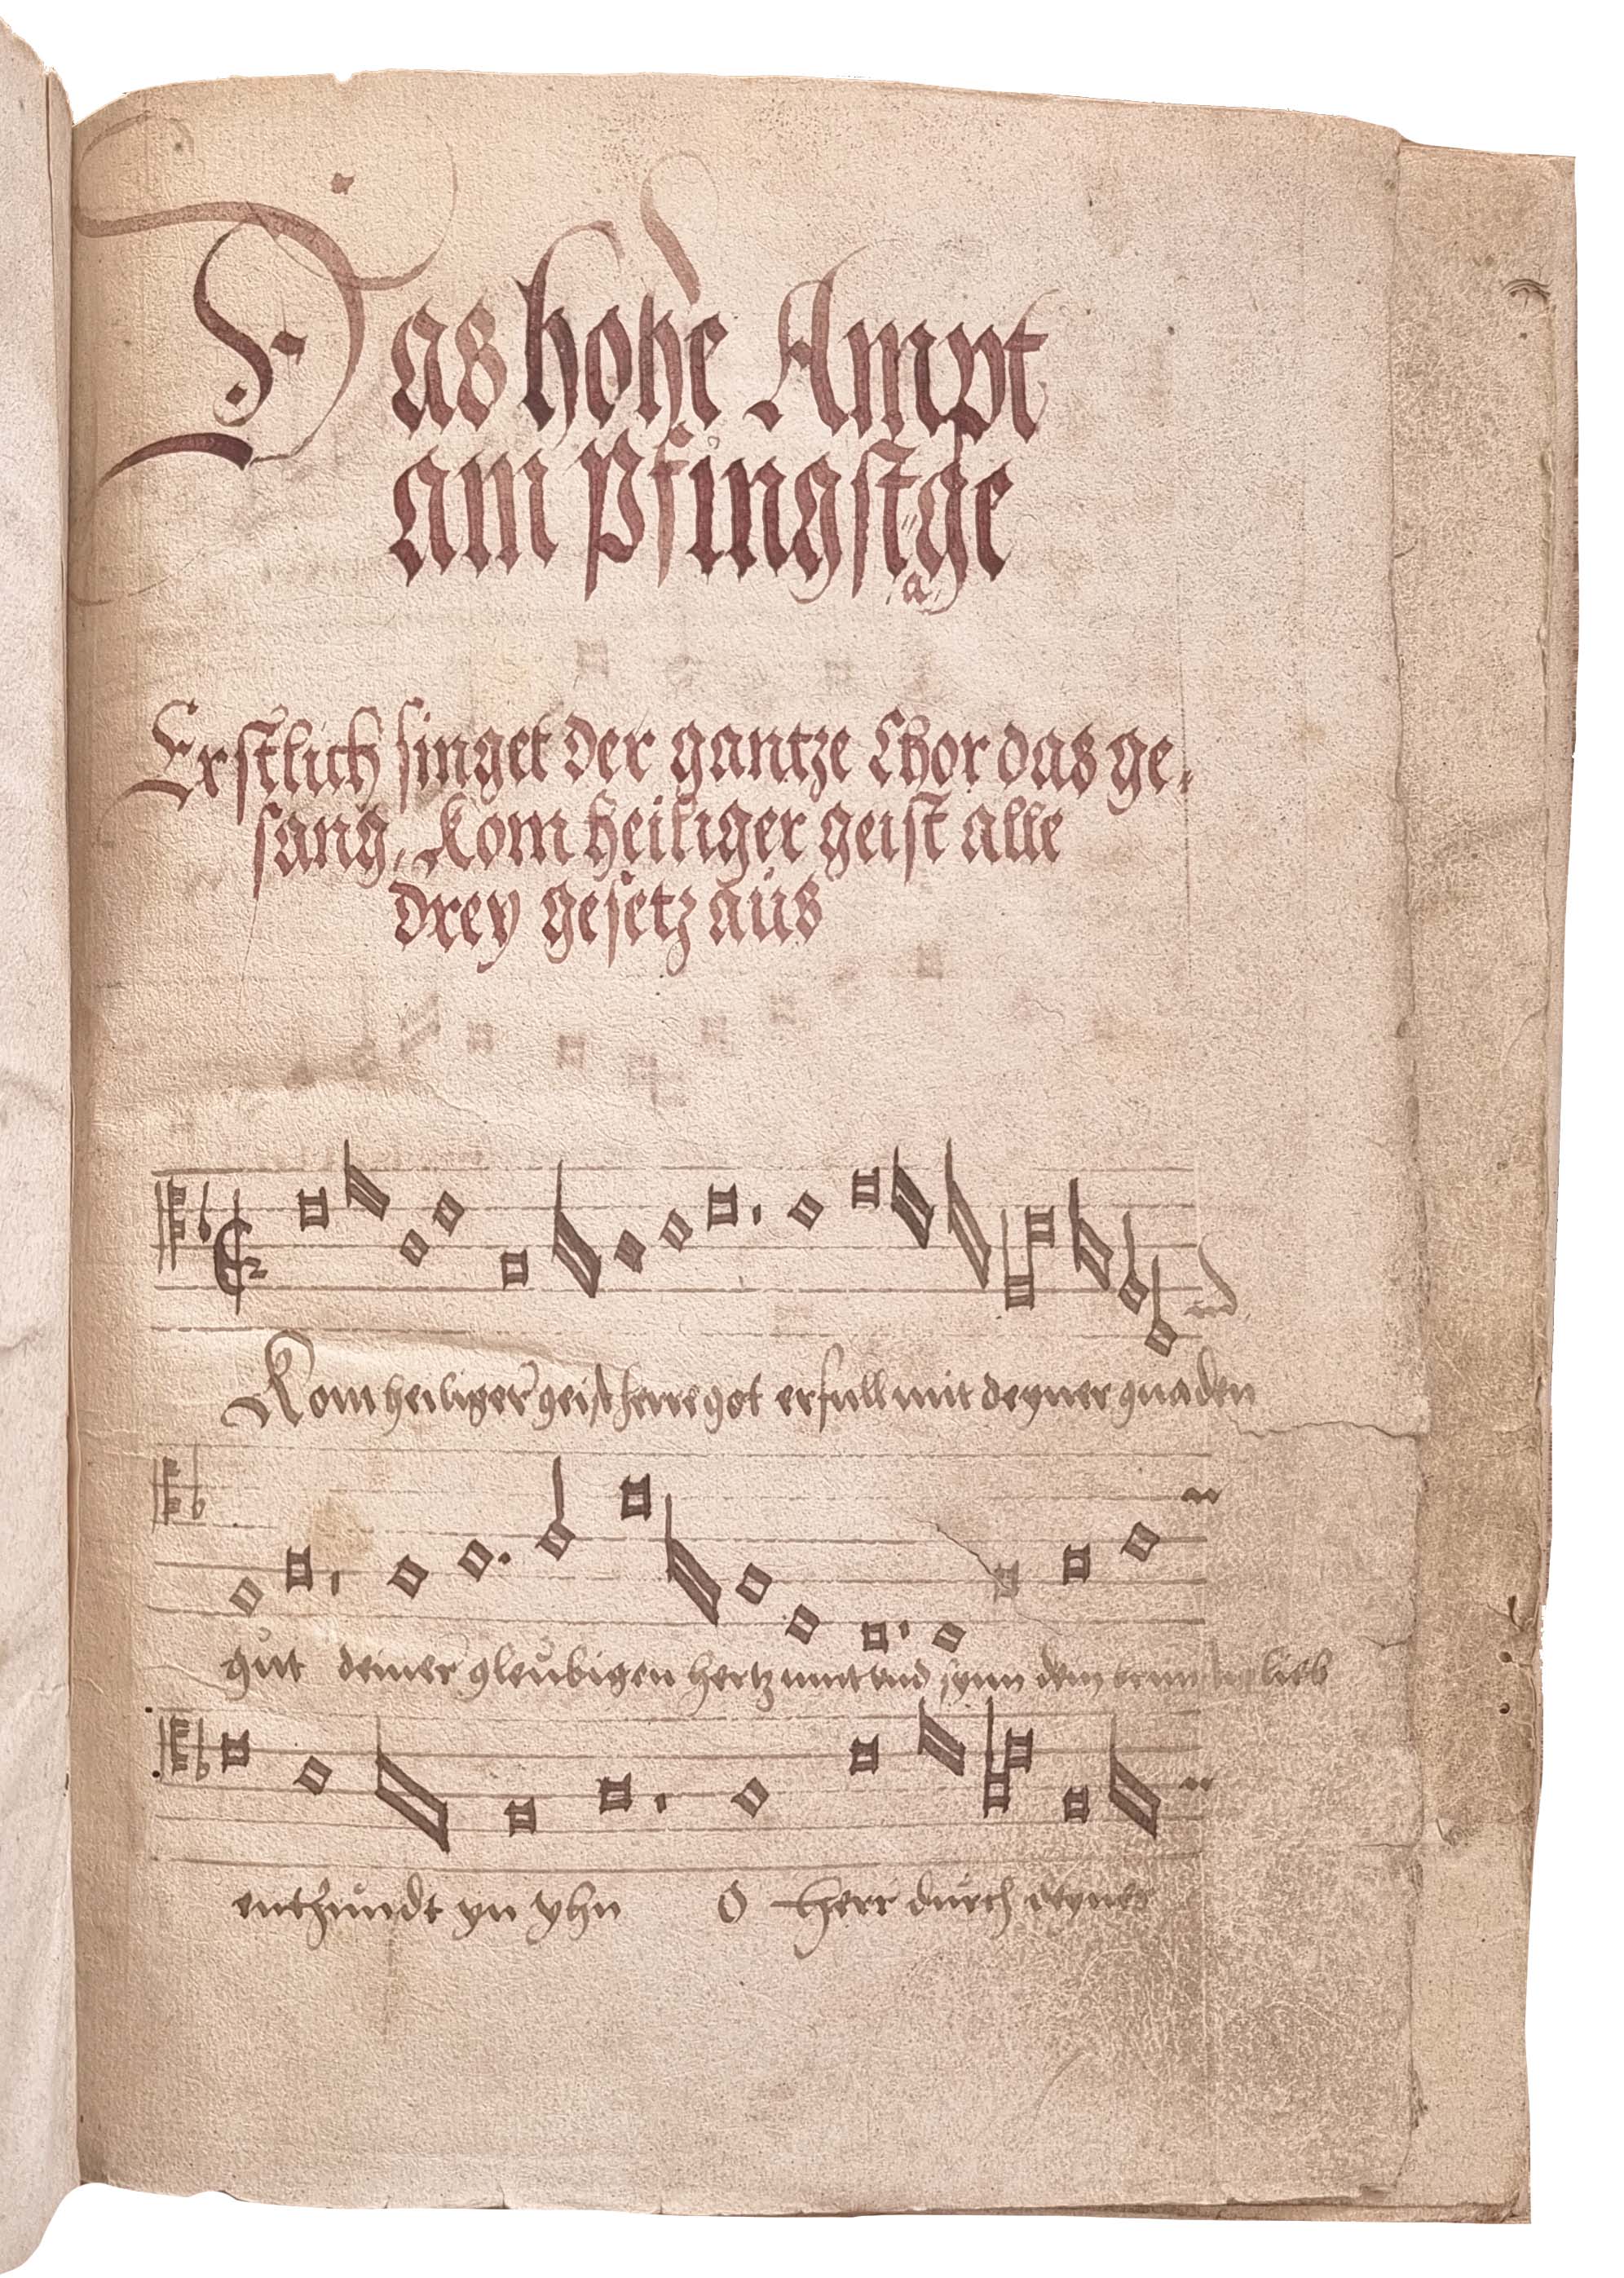 Das hohe Ampt
am Pfingstage
Erstlich singet der gantze Chor das ge-
sang, Kom heiliger geist alle
drey gesetz aus
Kom heiliger geist herre got erfull mit deyner gnaden
gut deiner gleubigen hertz mut und synn dein brunstig lieb
entzundt yn yhn O herr durch deynes